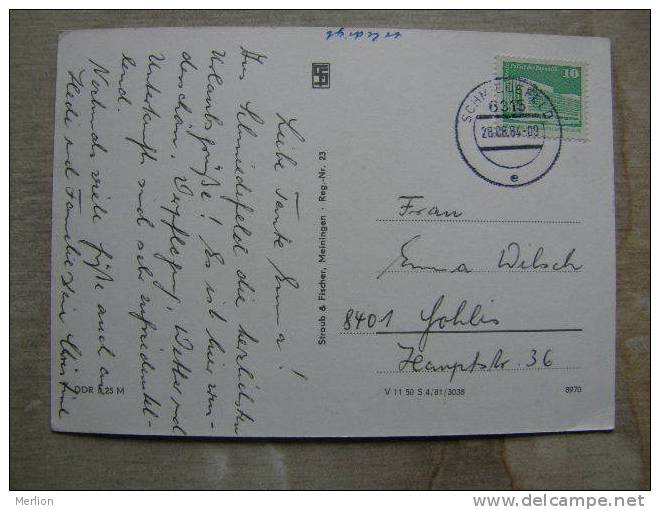 erledigt
Liebe Tante Emma!
Aus Schmiedefeld die herzlichsten
Urlaubsgrüße! Es ist hier wun-
derschön. Verpflegung, Wetter und
Unterkunft sind sehr zufriedenstel-
lend.
Nochmals viele Grüße auch an
Straub & Fischer, Meiningen · Reg.-Nr. 23
10
SCHMIEDEFELD
6315
28.08.84-09
e
Frau
Emma Wilsch
8401 Gohlis
Hauptstr. 36
DDR 0,25 M
V 11 50 S 4/81/3038
8970
Merlion
www.delcampe.net